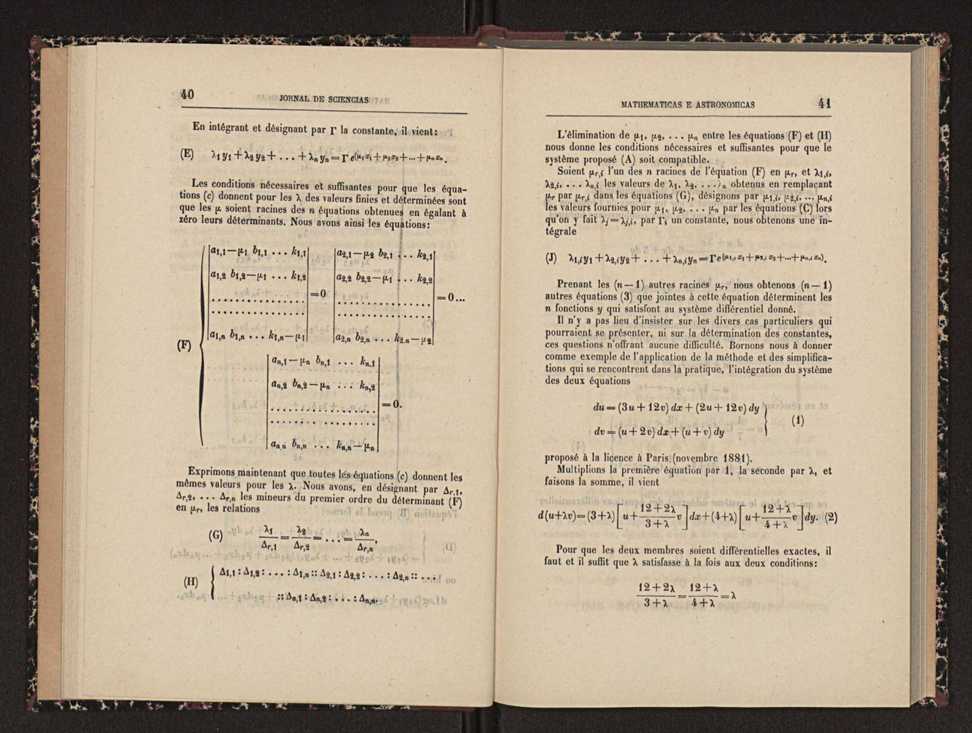 40
JORNAL DE SCIENCIAS
En intégrant et désignant par Γ la constante, il vient:
(E) λ₁y₁+λ₂y₂+ . . . +λₙyₙ=Γe^(μ₁x₁+μ₂x₂+...+μₙxₙ).
Les conditions nécessaires et suffisantes pour que les équa-
tions (c) donnent pour les λ des valeurs finies et déterminées sont
que les μ soient racines des n équations obtenues en égalant à
zéro leurs déterminants. Nous avons ainsi les équations:
a₁,₁—μ₁ b₁,₁ . . . k₁,₁ a₂,₁—μ₂ b₂,₁ . . . k₂,₁
a₁,₂ b₁,₂—μ₁ . . . k₁,₂ a₂,₂ b₂,₂—μ₂ . . . k₂,₂
=0 =0...
a₁,ₙ b₁,ₙ . . . k₁,ₙ—μ₁ a₂,ₙ b₂,ₙ . . . k₂,ₙ—μ₂
(F)
aₙ,₁—μₙ bₙ,₁ . . . kₙ,₁
aₙ,₂ bₙ,₂—μₙ . . . kₙ,₂
=0.
aₙ,ₙ bₙ,ₙ . . . kₙ,ₙ—μₙ
Exprimons maintenant que toutes les équations (c) donnent les
mêmes valeurs pour les λ. Nous avons, en désignant par Δr,₁,
Δr,₂, . . . Δr,ₙ les mineurs du premier ordre du déterminant (F)
en μr, les relations
(G) λ₁/Δr,₁ = λ₂/Δr,₂ = . . . = λₙ/Δr,ₙ,
(H) Δ₁,₁ : Δ₁,₂ : . . . : Δ₁,ₙ :: Δ₂,₁ : Δ₂,₂ : . . . : Δ₂,ₙ :: . . .
:: Δₙ,₁ : Δₙ,₂ : . . . : Δₙ,ₙ.
MATHEMATICAS E ASTRONOMICAS
41
L'élimination de μ₁, μ₂, . . . μₙ entre les équations (F) et (H)
nous donne les conditions nécessaires et suffisantes pour que le
système proposé (A) soit compatible.
Soient μr,i l'un des n racines de l'équation (F) en μr, et λ₁,i,
λ₂,i, . . . λₙ,i les valeurs de λ₁, λ₂, . . . λₙ obtenus en remplaçant
μr par μr,i dans les équations (G), désignons par μ₁,i, μ₂,i, ... μₙ,i
les valeurs fournies pour μ₁, μ₂, . . . μₙ par les équations (C) lors
qu'on y fait λj=λj,i, par Γi un constante, nous obtenons une in-
tégrale
(J) λ₁,iy₁+λ₂,iy₂+ . . . +λₙ,iyₙ=Γe^(μ₁,i x₁+μ₂,i x₂+...+μₙ,i xₙ).
Prenant les (n—1) autres racines μr, nous obtenons (n—1)
autres équations (3) que jointes à cette équation déterminent les
n fonctions y qui satisfont au système différentiel donné.
Il n'y a pas lieu d'insister sur les divers cas particuliers qui
pourraient se présenter, ni sur la détermination des constantes,
ces questions n'offrant aucune difficulté. Bornons nous à donner
comme exemple de l'application de la méthode et des simplifica-
tions qui se rencontrent dans la pratique, l'intégration du système
des deux équations
du=(3u+12v) dx+(2u+12v) dy
(1)
dv=(u+2v) dx+(u+v) dy
proposé à la licence à Paris (novembre 1881).
Multiplions la première équation par 1, la seconde par λ, et
faisons la somme, il vient
d(u+λv)=(3+λ)[u+(12+2λ)/(3+λ) v]dx+(4+λ)[u+(12+λ)/(4+λ) v]dy. (2)
Pour que les deux membres soient différentielles exactes, il
faut et il suffit que λ satisfasse à la fois aux deux conditions:
(12+2λ)/(3+λ) = (12+λ)/(4+λ) = λ